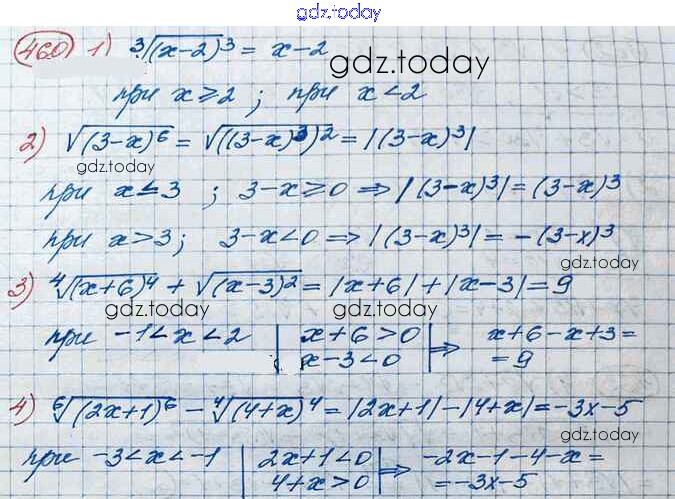 gdz.today
460 1) ³√(x-2)³ = x-2
gdz.today
при x≥2 ; при x<2
2) √(3-x)⁶ = √((3-x)³)² = |(3-x)³|
gdz.today
при x≤3 ; 3-x≥0 ⇒ |(3-x)³| = (3-x)³
при x>3 ; 3-x<0 ⇒ |(3-x)³| = -(3-x)³
gdz.today
3) ⁴√(x+6)⁴ + √(x-3)² = |x+6| + |x-3| = 9
gdz.today gdz.today
при -1<x<2 | x+6>0 | ⇒ x+6-x+3=
x-3<0 =9
4) ⁶√(2x+1)⁶ - ⁴√(4+x)⁴ = |2x+1| - |4+x| = -3x-5
gdz.today
при -3<x<-1 | 2x+1<0 | ⇒ -2x-1-4-x=
4+x>0 =-3x-5